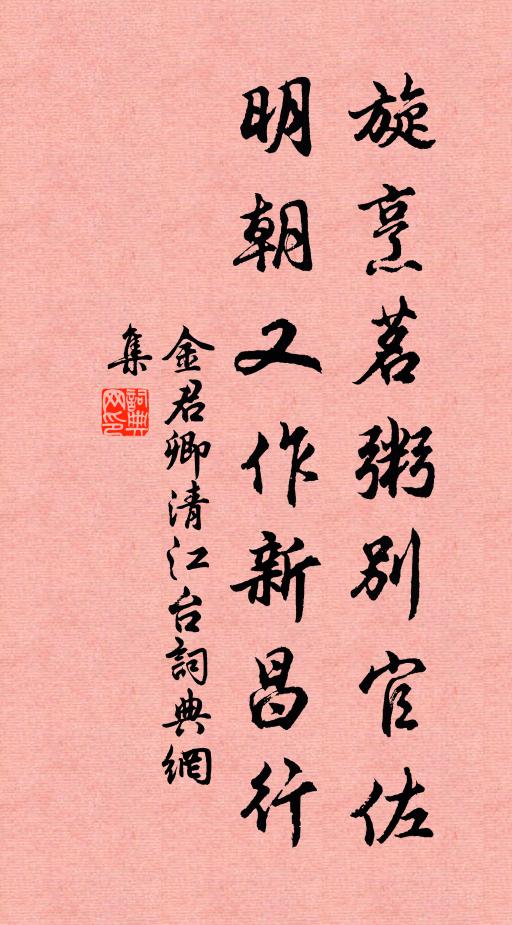 旋烹茗粥別官佐
明朝又作新昌行
金君卿清江台詞典網
集
詞典網印